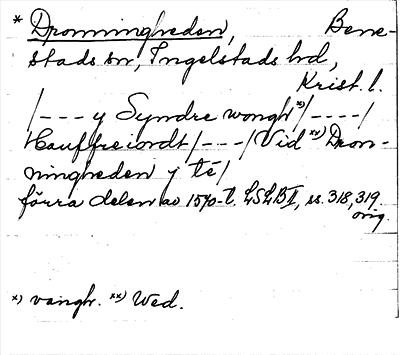 * Dronningheden, Bene-
stads sn, Ingelstads hd,
Krist. l.
/--- y Syndre wongh x)/----/
Hauffreiordt /---/ Vid xx) Dron-
ningheden j té/
förra delen av 1570-t. LSLB II, ss. 318, 319.
orig.
x) vangh. xx) Wed.